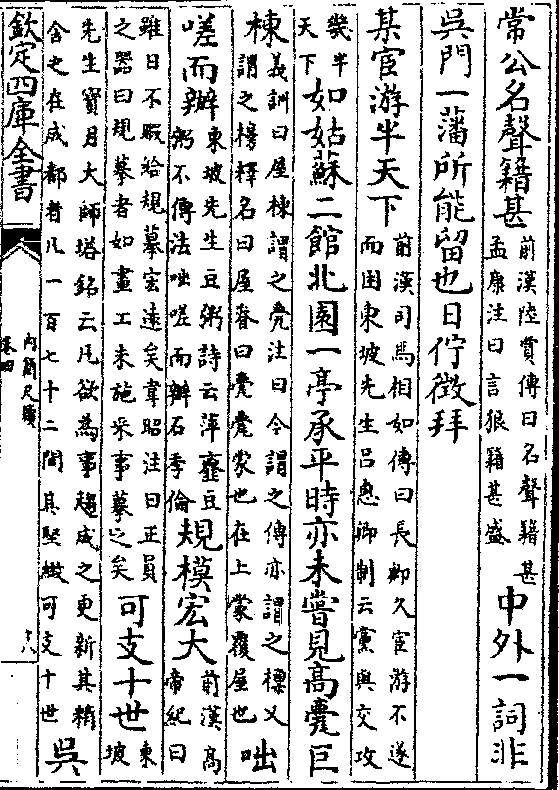 常公名聲籍甚前漢陸賈傳曰名聲籍甚孟康注曰言狼籍甚盛中外一詞非
吳門一藩所能留也日佇徵拜
某宦游半天下前漢司馬相如傳曰長卿久宦游不遂而困東坡先生呂惠卿制云黨與交攻
幾半天下如姑蘇二館北園一亭承平時亦未嘗見高甍巨
棟義訓曰屋棟謂之甍注曰今謂之傳亦謂之檁又謂之棉釋名曰屋脊曰甍甍蒙也在上蒙覆屋也咄
嗟而辦東坡先生豆粥詩云萍虀豆粥不傳法咄嗟而辦石季倫規模宏大前漢高帝紀曰
雖日不暇給規摹宏遠矣韋昭注曰正員之器曰規摹者如畫工未施采事摹之矣可支十世東坡
先生寶月大師塔銘云凡欲為事趨成之更新其精舍之在成都者凡一百七十二間其堅緻可支十世吳
欽定四庫全書
內簡尺牘
卷四
十八